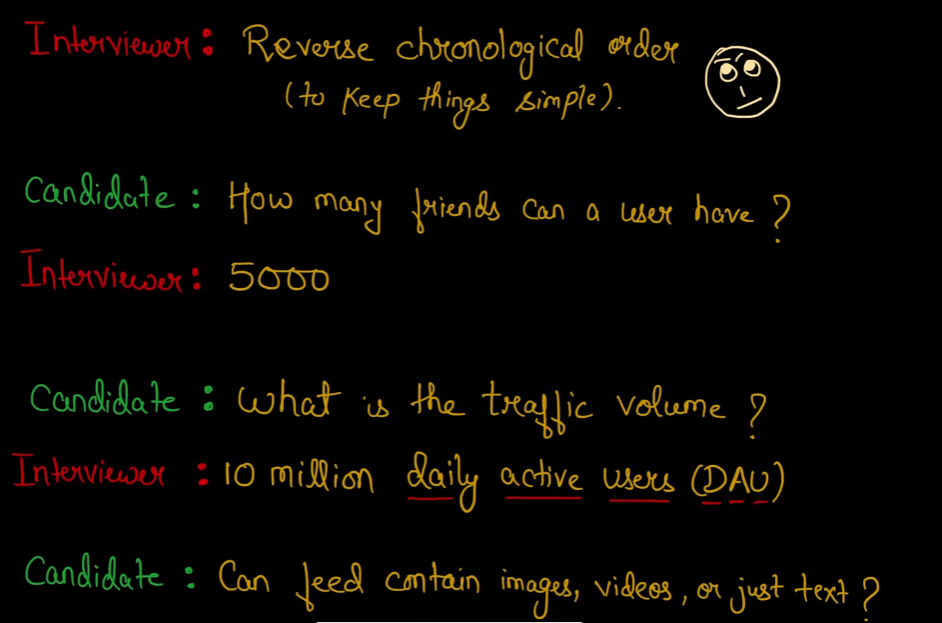 Interviewer: Reverse chronological order
(to keep things simple).
Candidate: How many friends can a user have?
Interviewer: 5000
Candidate: What is the traffic volume?
Interviewer: 10 million daily active users (DAU)
Candidate: Can feed contain images, videos, or just text?